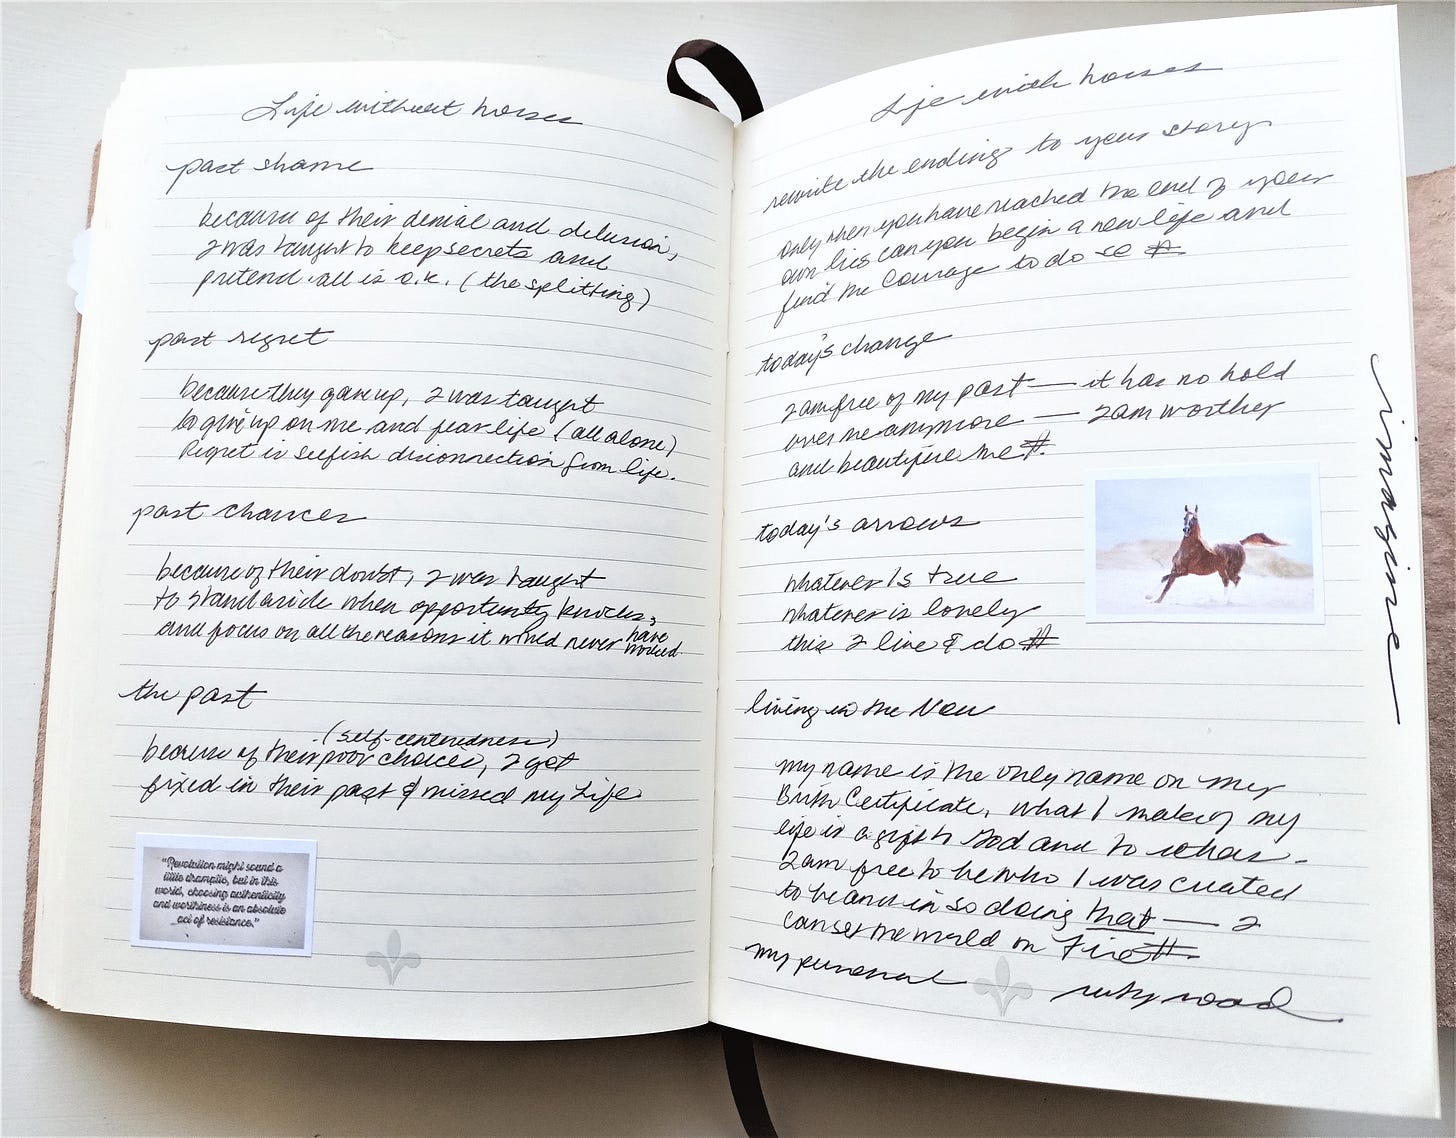 Life without horses
past shame
because of their denial and delusion,
I was taught to keep secrets and
pretend all is o.k. (the splitting)
past regret
because they gave up, I was taught
to give up on me and fear life (all alone)
Regret is selfish disconnection from life.
past chances
because of their doubt, I was taught
to stand aside when opportunity knocks,
and focus on all the reasons it would never have
worked
the past
(self-centeredness)
because of their poor choices, I got
fixed in their past & missed my Life
"Revolution might sound a
little dramatic, but in this
world, choosing authenticity
and worthiness is an absolute
act of resistance."
Life with horses
rewrite the ending to your story
only when you have reached the end of your
own lies can you begin a new life and
find the courage to do so #
today's change
I am free of my past — it has no hold
over me anymore — I am worthy
and beautiful me #.
today's arrows
whatever is true
whatever is lovely
this I live & do #
living in the Now
my name is the only name on my
Birth Certificate, what I make of my
life is a gift to God and to others -
I am free to be who I was created
to be and in so doing that — I
can set the world on Fire #.
my personal ruby road.
imagine